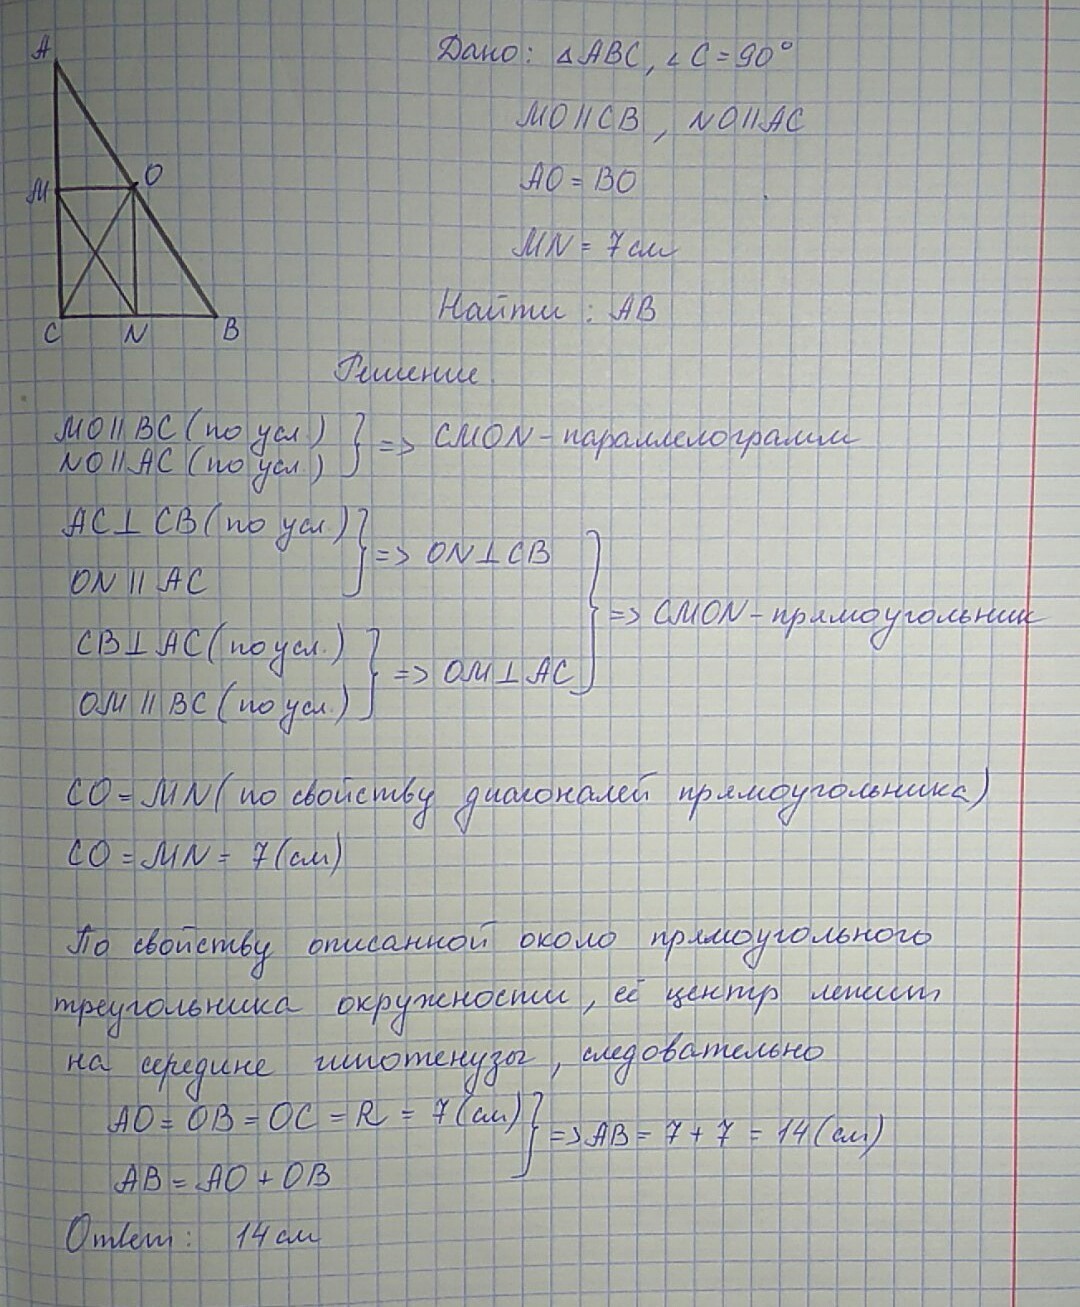 A
M
O
C
N
B
Дано: △ABC, ∠C = 90°
MO || CB, NO || AC
AO = BO
MN = 7 см
Найти: AB
Решение.
MO || BC (по усл.)
NO || AC (по усл.)
} => CMON - параллелограмм
AC ⊥ CB (по усл.)
ON || AC
} => ON ⊥ CB
CB ⊥ AC (по усл.)
OM || BC (по усл.)
} => OM ⊥ AC
} => CMON - прямоугольник
CO = MN (по свойству диагоналей прямоугольника)
CO = MN = 7 (см)
По свойству описанной около прямоугольного
треугольника окружности, её центр лежит
на середине гипотенузы, следовательно
AO = OB = OC = R = 7 (см)
AB = AO + OB
} => AB = 7 + 7 = 14 (см)
Ответ: 14 см